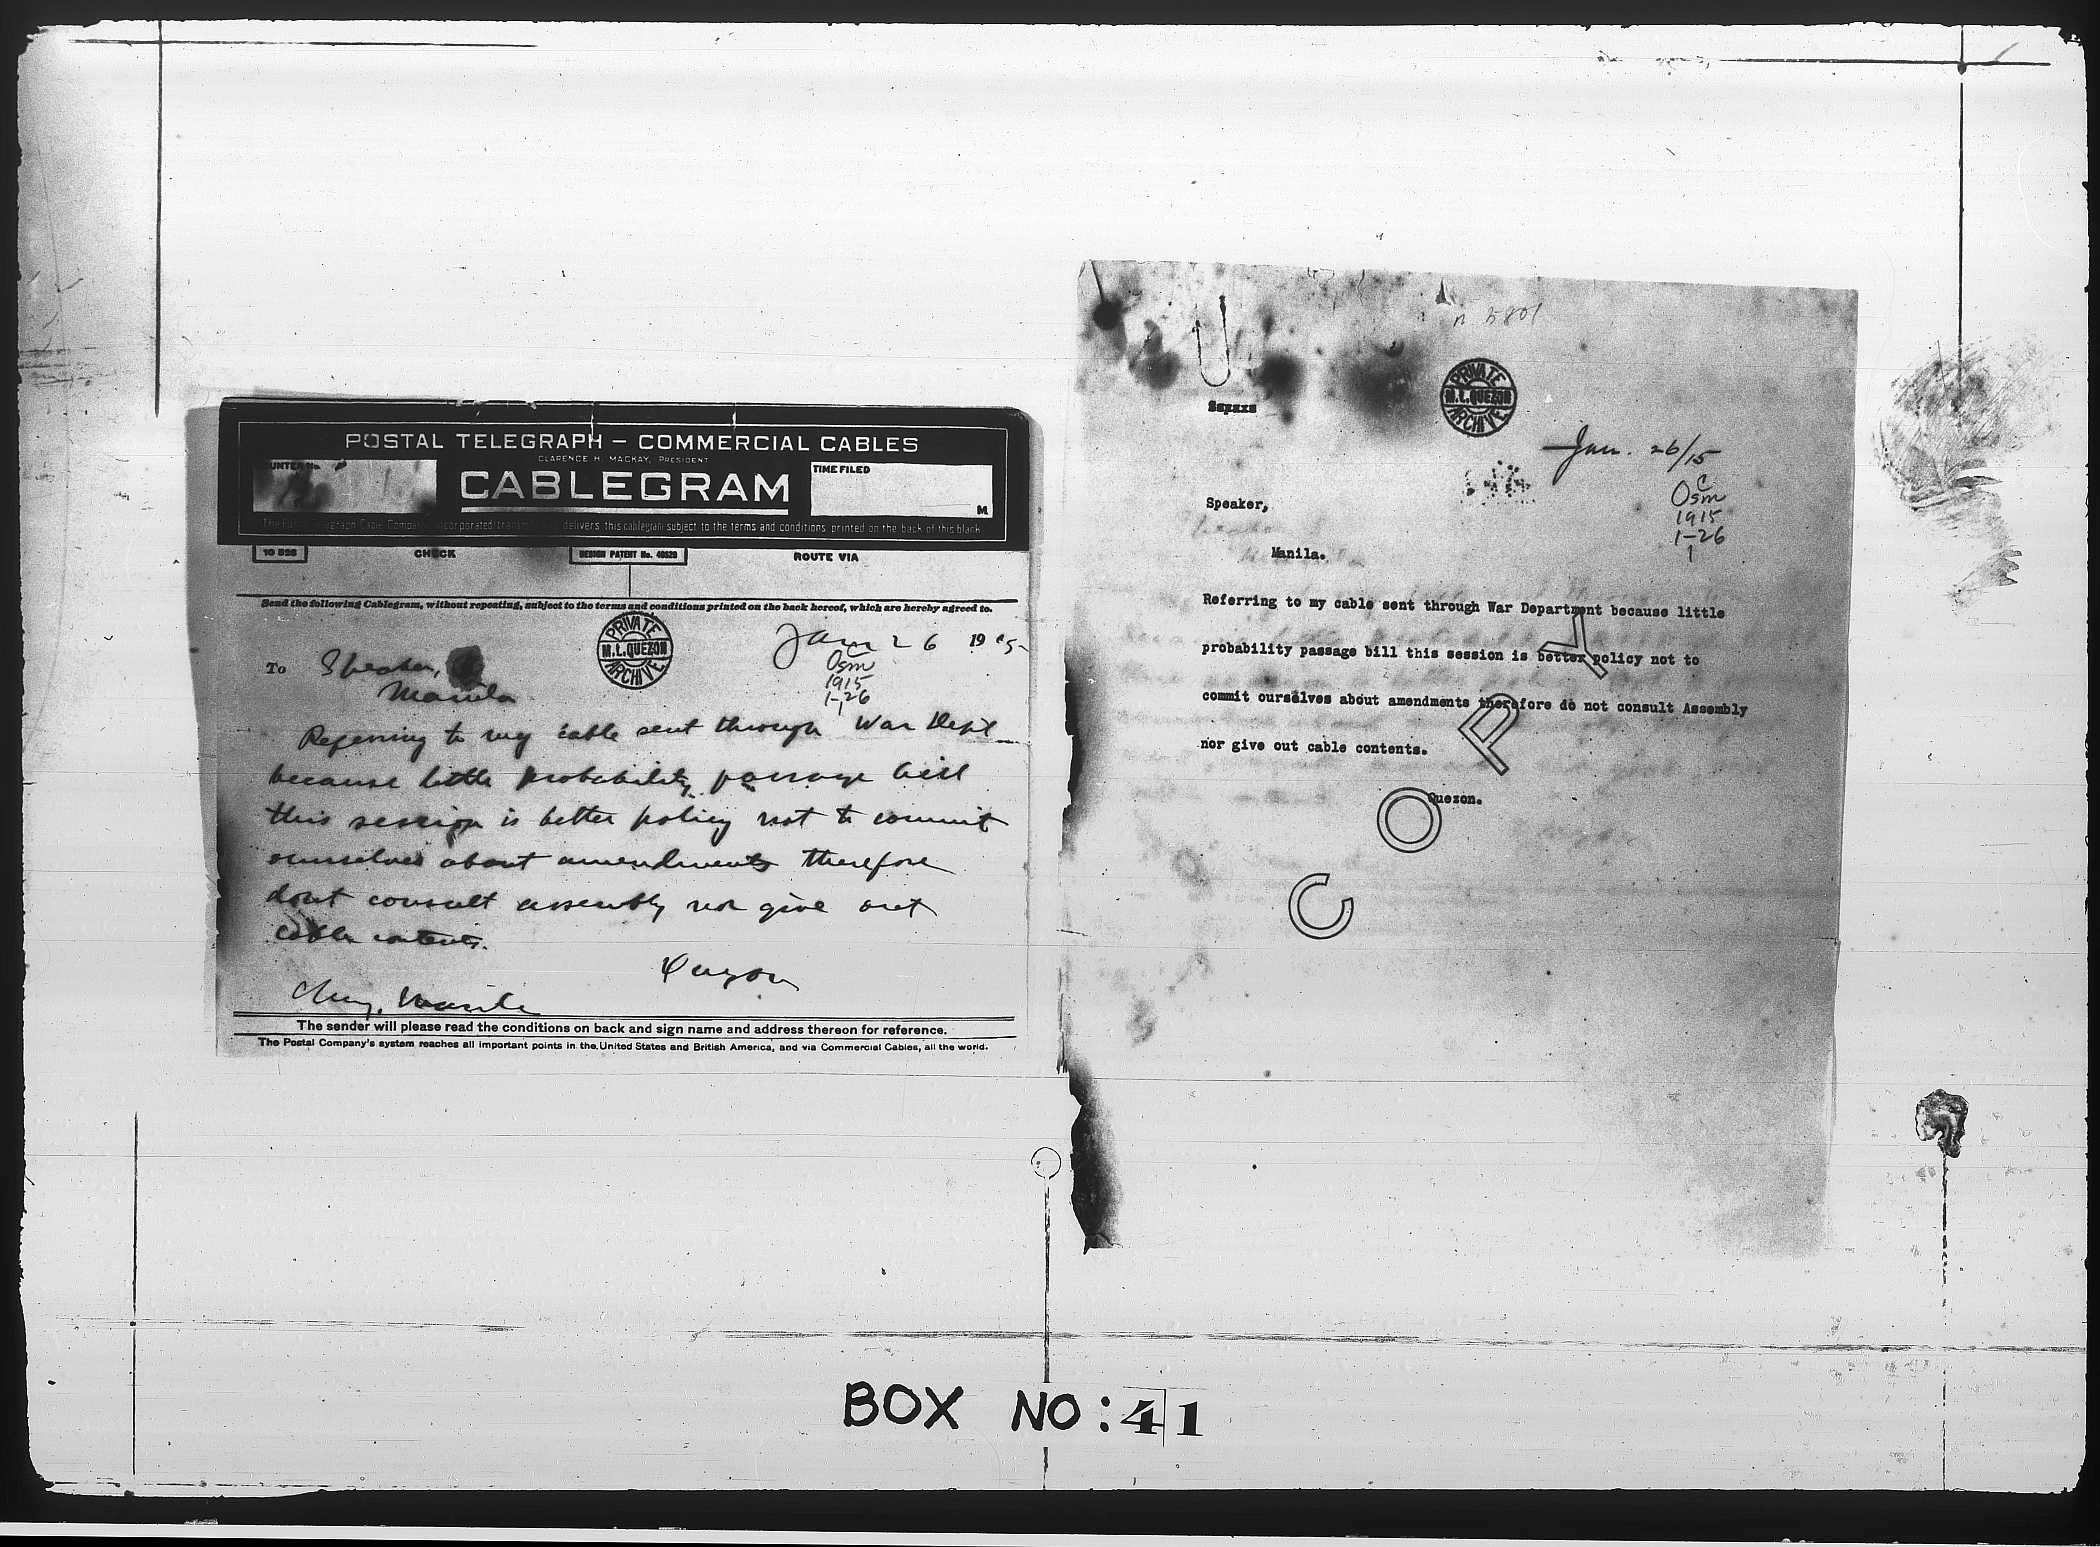 POSTAL TELEGRAPH – COMMERCIAL CABLES
CLARENCE H. MACKAY, PRESIDENT
CABLEGRAM
TIME FILED
M.
delivers this cablegram subject to the terms and conditions printed on the back of this blank
10 528
CHECK
DESIGN PATENT No. 40529
ROUTE VIA
Send the following Cablegram, without repeating, subject to the terms and conditions printed on the back hereof, which are hereby agreed to.
PRIVATE
M.L.QUEZON
ARCHIVE
Jan 26 1915
C
Osm
1915
1-26
1
To Speaker,
Manila
Referring to my cable sent through War Dept
because little probability passage bill
this session is better policy not to commit
ourselves about amendments therefore
dont consult assembly nor give out
cable contents.
Quezon
The sender will please read the conditions on back and sign name and address thereon for reference.
The Postal Company's system reaches all important points in the United States and British America, and via Commercial Cables, all the world.
PRIVATE
M.L.QUEZON
ARCHIVE
Jan. 26/15
C
Osm
1915
1-26
1
Speaker,
Manila.
Referring to my cable sent through War Department because little
probability passage bill this session is better policy not to
commit ourselves about amendments therefore do not consult Assembly
nor give out cable contents.
Quezon.
COPY
BOX NO:41